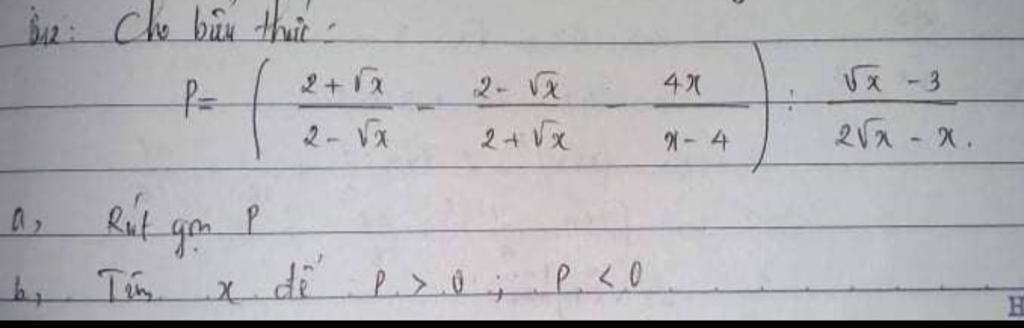 B12: Cho biểu thức:
P = ( (2 + √x)/(2 - √x) - (2 - √x)/(2 + √x) - 4x/(x - 4) ) : (√x - 3)/(2√x - x).
a, Rút gọn P
b, Tìm x để P > 0 ; P < 0
H